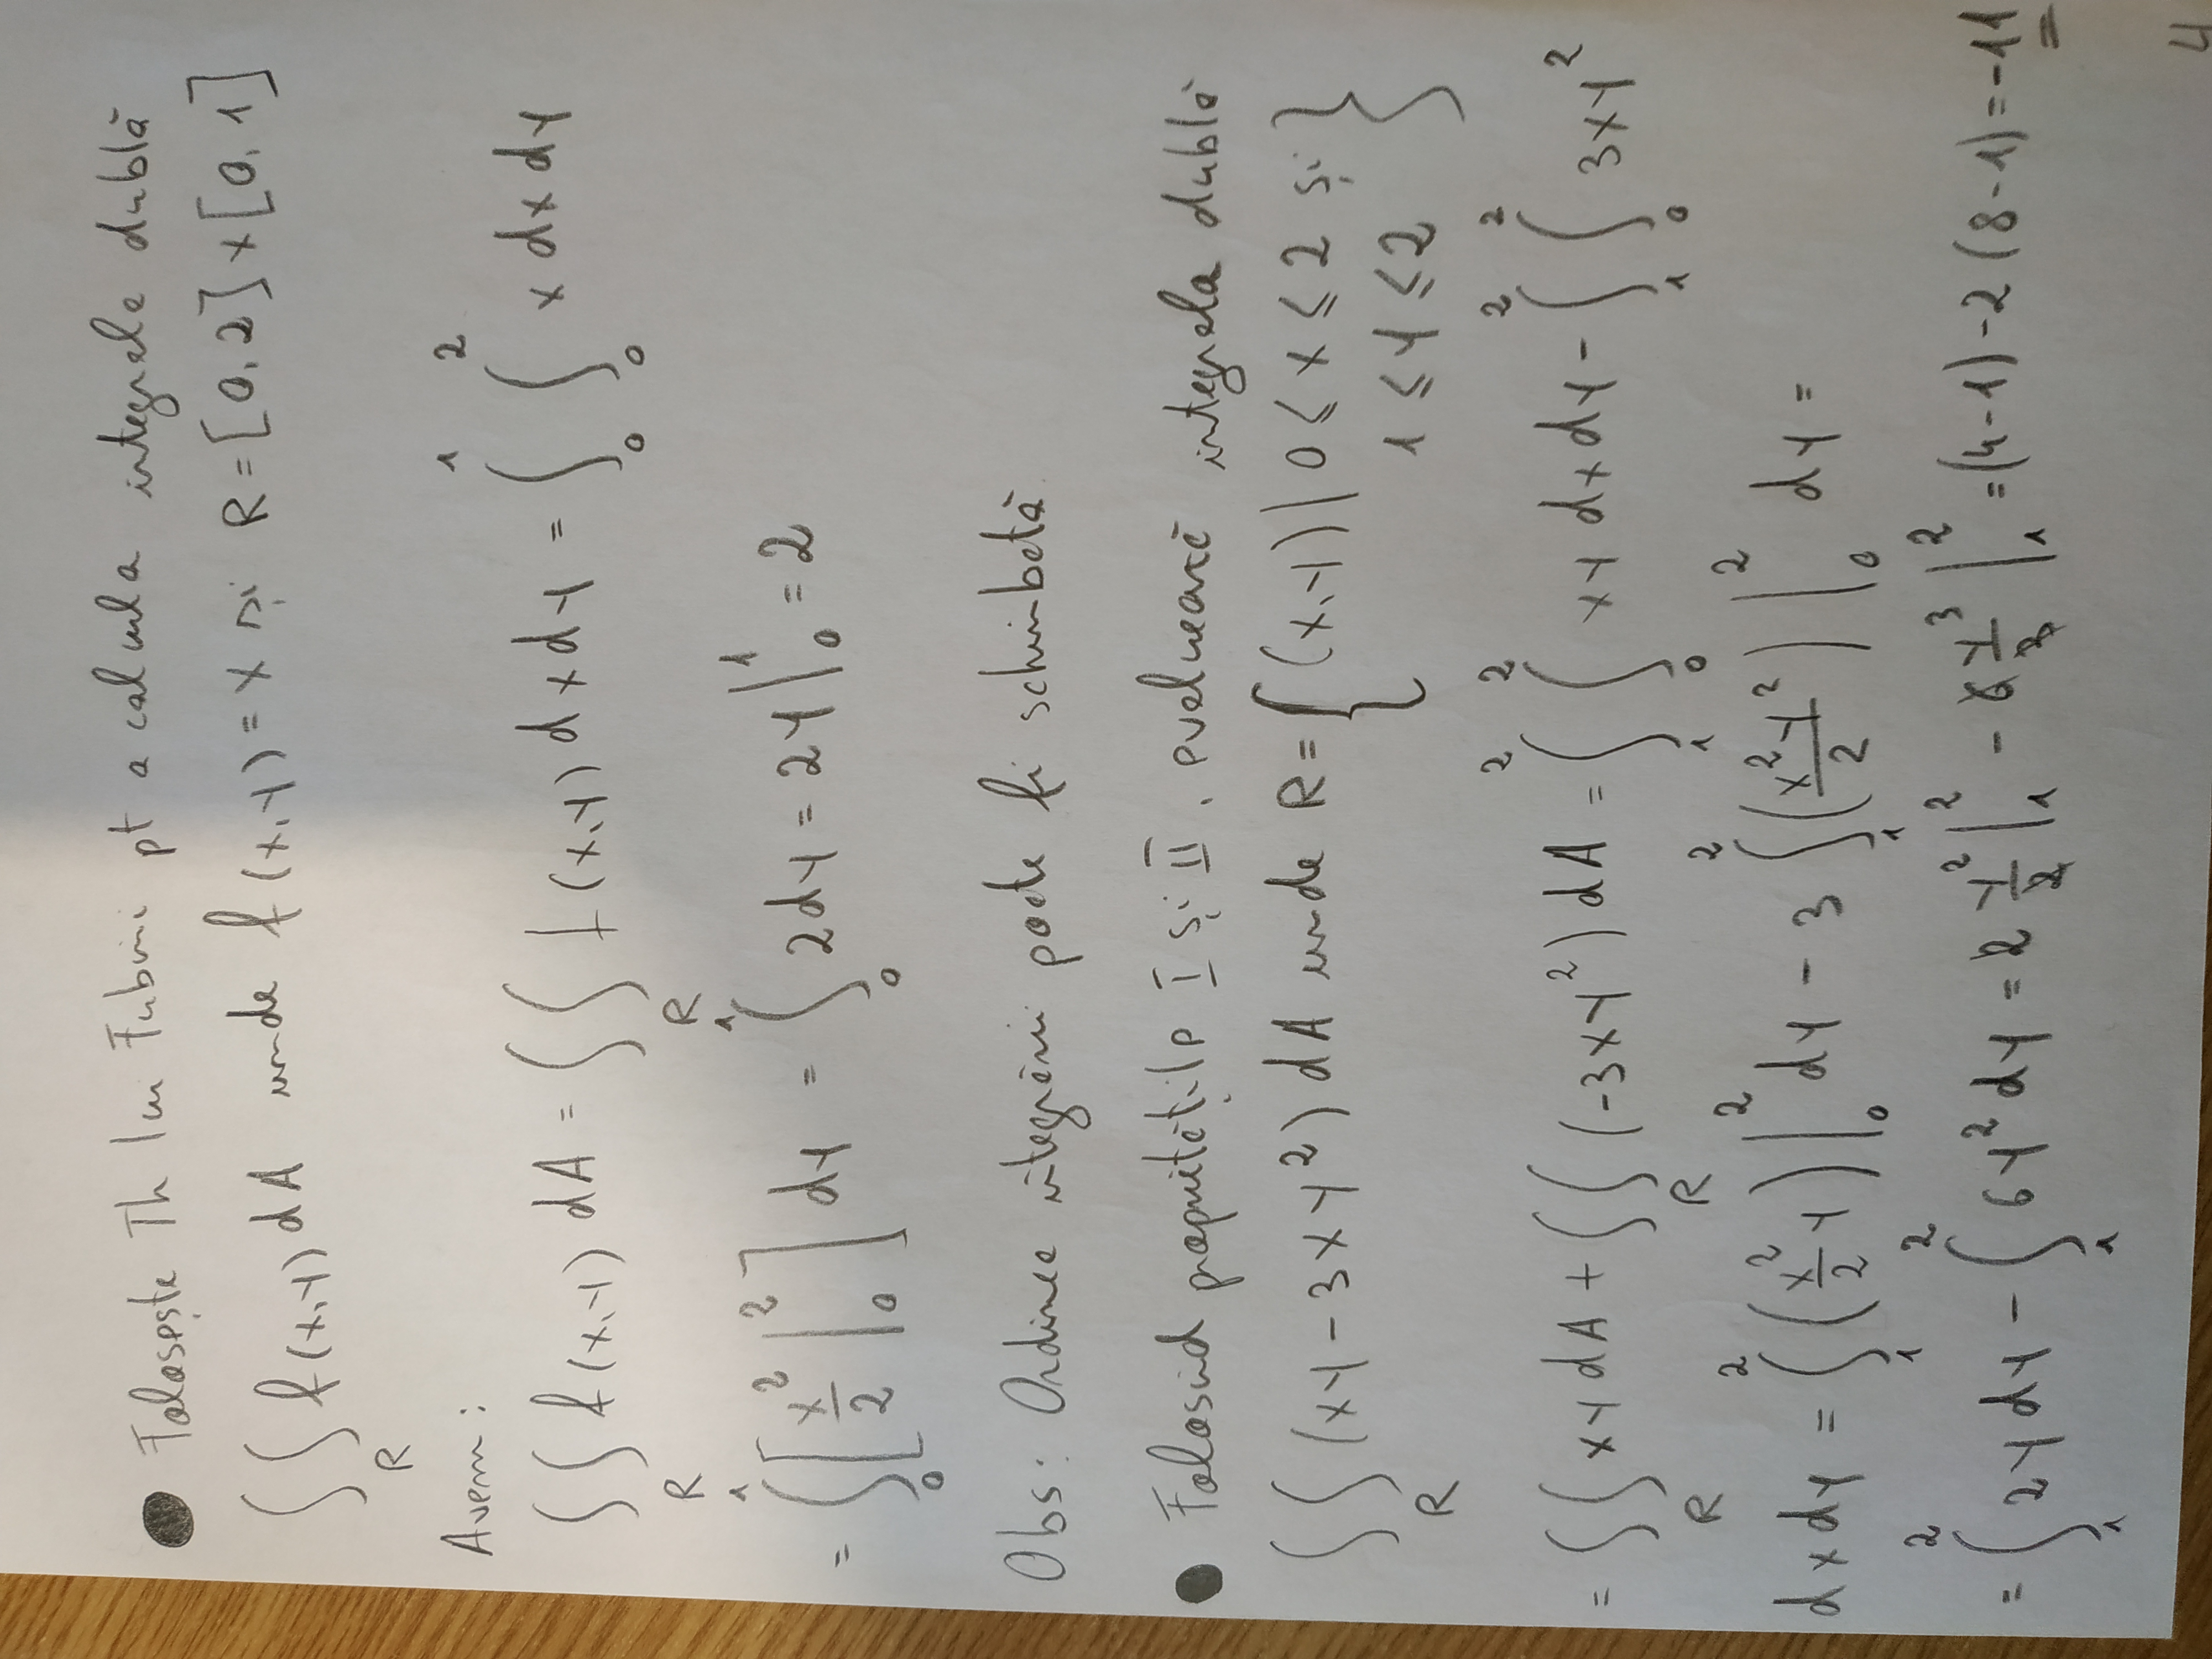 ● Folosește Th lui Fubini pt a calcula integrala dublă
∫∫_R f(x,y) dA unde f(x,y) = x și R = [0,2] × [0,1]
Avem:
∫∫_R f(x,y) dA = ∫∫_R f(x,y) dx dy = ∫_0^1 ∫_0^2 x dx dy
= ∫_0^1 [x²/2 |_0^2] dy = ∫_0^1 2dy = 2y |_0^1 = 2
Obs: Ordinea integrării poate fi schimbată
● Folosind proprietățile I și II, evaluează integrala dublă
∫∫_R (xy - 3xy²) dA unde R = {(x,y) | 0 ≤ x ≤ 2 și
1 ≤ y ≤ 2}
= ∫∫_R xy dA + ∫∫_R (-3xy²) dA = ∫_1^2 ∫_0^2 xy dx dy - ∫_1^2 ∫_0^2 3xy²
dx dy = ∫_1^2 (x²/2 y) |_0^2 dy - 3 ∫_1^2 (x²y²/2) |_0^2 dy =
= ∫_1^2 2y dy - ∫_1^2 6y² dy = 2 y²/2 |_1^2 - 6 y³/3 |_1^2 = (4-1) - 2 (8-1) = -11
4